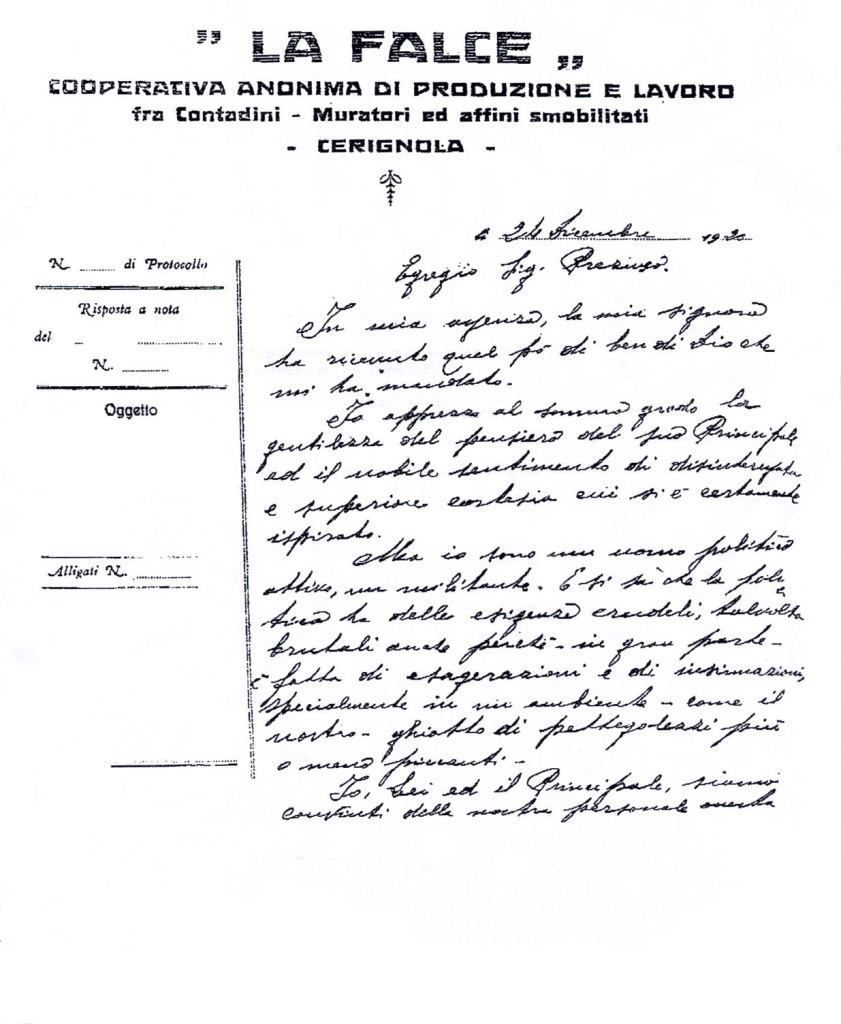 " LA FALCE "
COOPERATIVA ANONIMA DI PRODUZIONE E LAVORO
fra Contadini - Muratori ed affini smobilitati
- CERIGNOLA -
lì 24 Dicembre 1920
N. ........ di Protocollo
Risposta a nota
del
N.
Oggetto
Alligati N.
Egregio Sig. Preziuso.
In mia assenza, la mia signora
ha ricevuto quel pò di ben di Dio che
mi ha mandato.
Io apprezzo al sommo grado la
gentilezza del pensiero del suo Principale
ed il nobile sentimento di disinteressata
e superiore cortesia cui si è certamente
ispirato.
Ma io sono un uomo politico
attivo, un militante. E si sà che la poli
tica ha delle esigenze crudeli, talvolta
brutali anche perché - in gran parte -
è fatta di esagerazioni e di insinuazioni,
specialmente in un ambiente - come il
nostro - ghiotto di pettegolezzi più
o meno piccanti. -
Io, Lei ed il Principale, siamo
convinti della nostra personale onestà